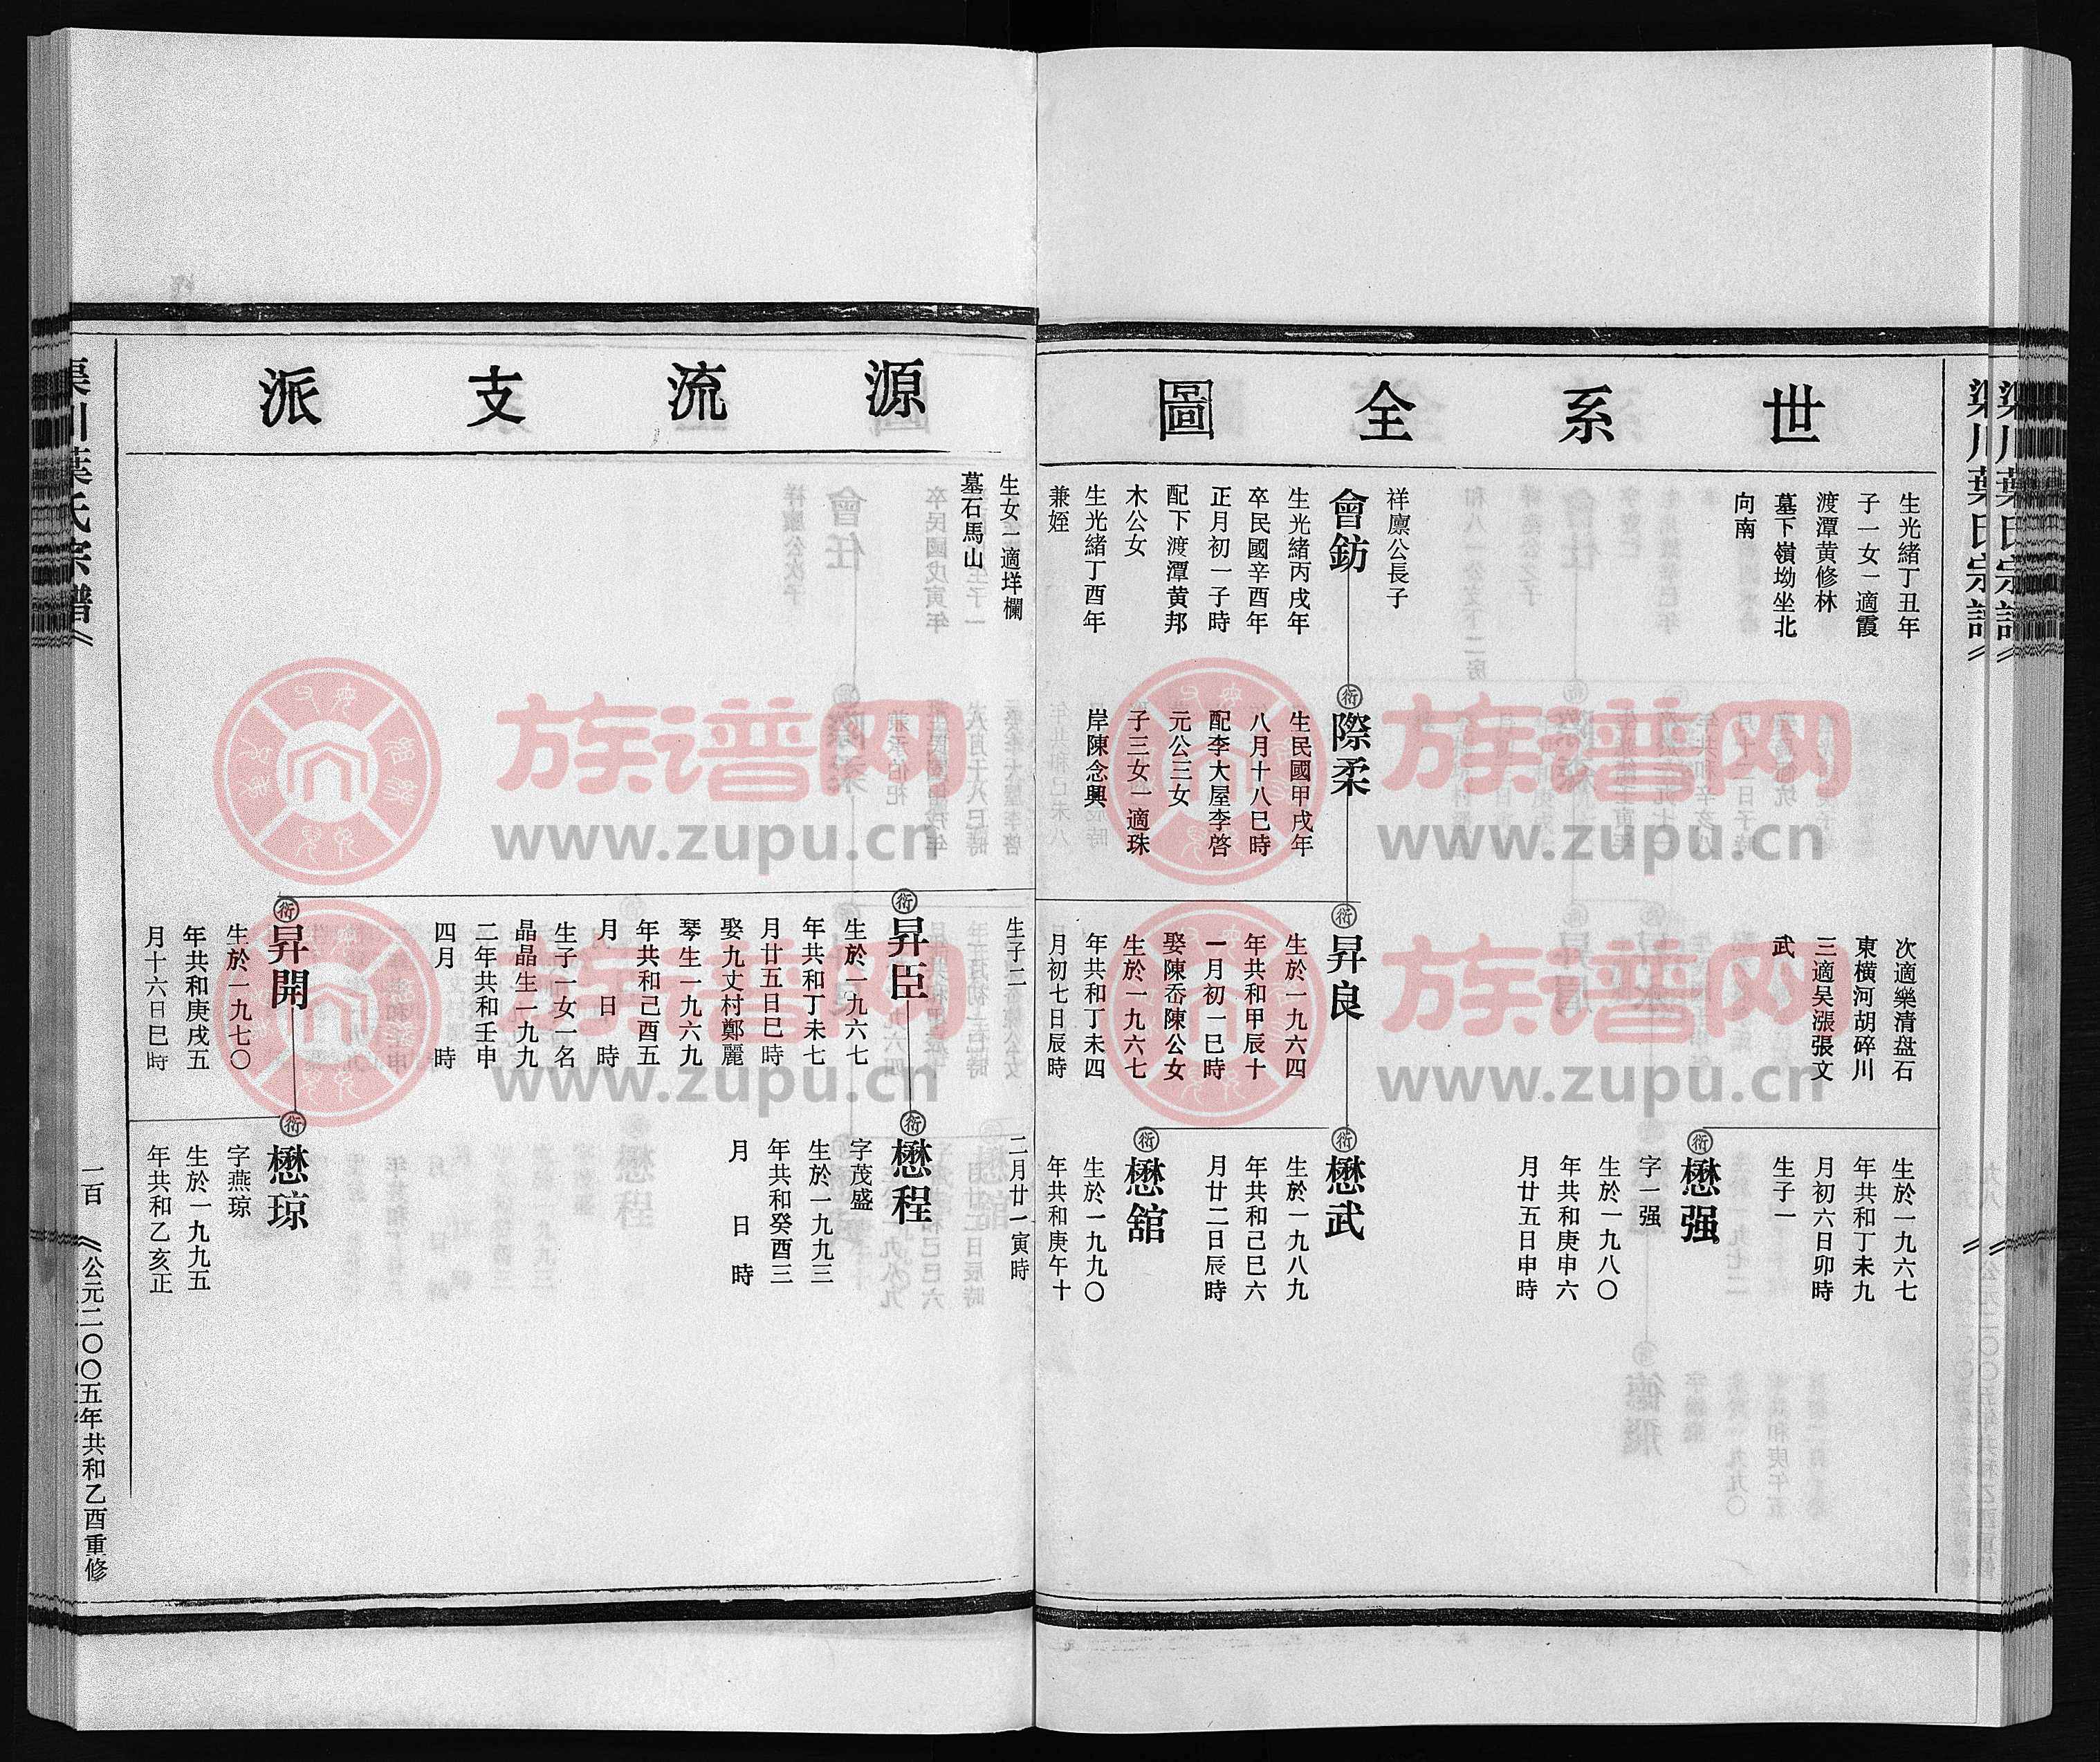 世系全圖
生光緒丁丑年
子一女一適霞
渡潭黄修林
墓下嶺坳坐北
向南
祥廪公長子
會鈁
生光緒丙戌年
卒民國辛酉年
正月初一子時
配下渡潭黄邦
木公女
生光緒丁酉年
兼姪
衍
際柔
生民國甲戌年
八月十八巳時
配李大屋李啓
元公三女
子三女一適珠
岸陳念興
次適樂清盘石
東横河胡碎川
三適吴漲張文
武
衍
昇良
生於一九六四
年共和甲辰十
一月初一巳時
娶陳岙陳公女
生於一九六七
年共和丁未四
月初七日辰時
生於一九六七
年共和丁未九
月初六日卯時
生子一
衍
懋强
字一强
生於一九八〇
年共和庚申六
月廿五日申時
衍
懋武
生於一九八九
年共和己巳六
月廿二日辰時
衍
懋舘
生於一九九〇
年共和庚午十
源流支派
生女一適垟欄
墓石馬山
生子二
衍
昇臣
生於一九六七
年共和丁未七
月廿五日巳時
娶九丈村鄭麗
琴生一九六九
年共和己酉五
月 日 時
生子一女一名
晶晶生一九九
二年共和壬申
四月 時
衍
昇開
生於一九七〇
年共和庚戌五
月十六日巳時
二月廿一寅時
衍
懋程
字茂盛
生於一九九三
年共和癸酉三
月 日 時
衍
懋琼
字燕琼
生於一九九五
年共和乙亥正
葉氏宗譜
一百
《公元二〇〇五年共和乙酉重修
族谱网
www.zupu.cn
族谱网
www.zupu.cn
族谱网
www.zupu.cn
族谱网
www.zupu.cn